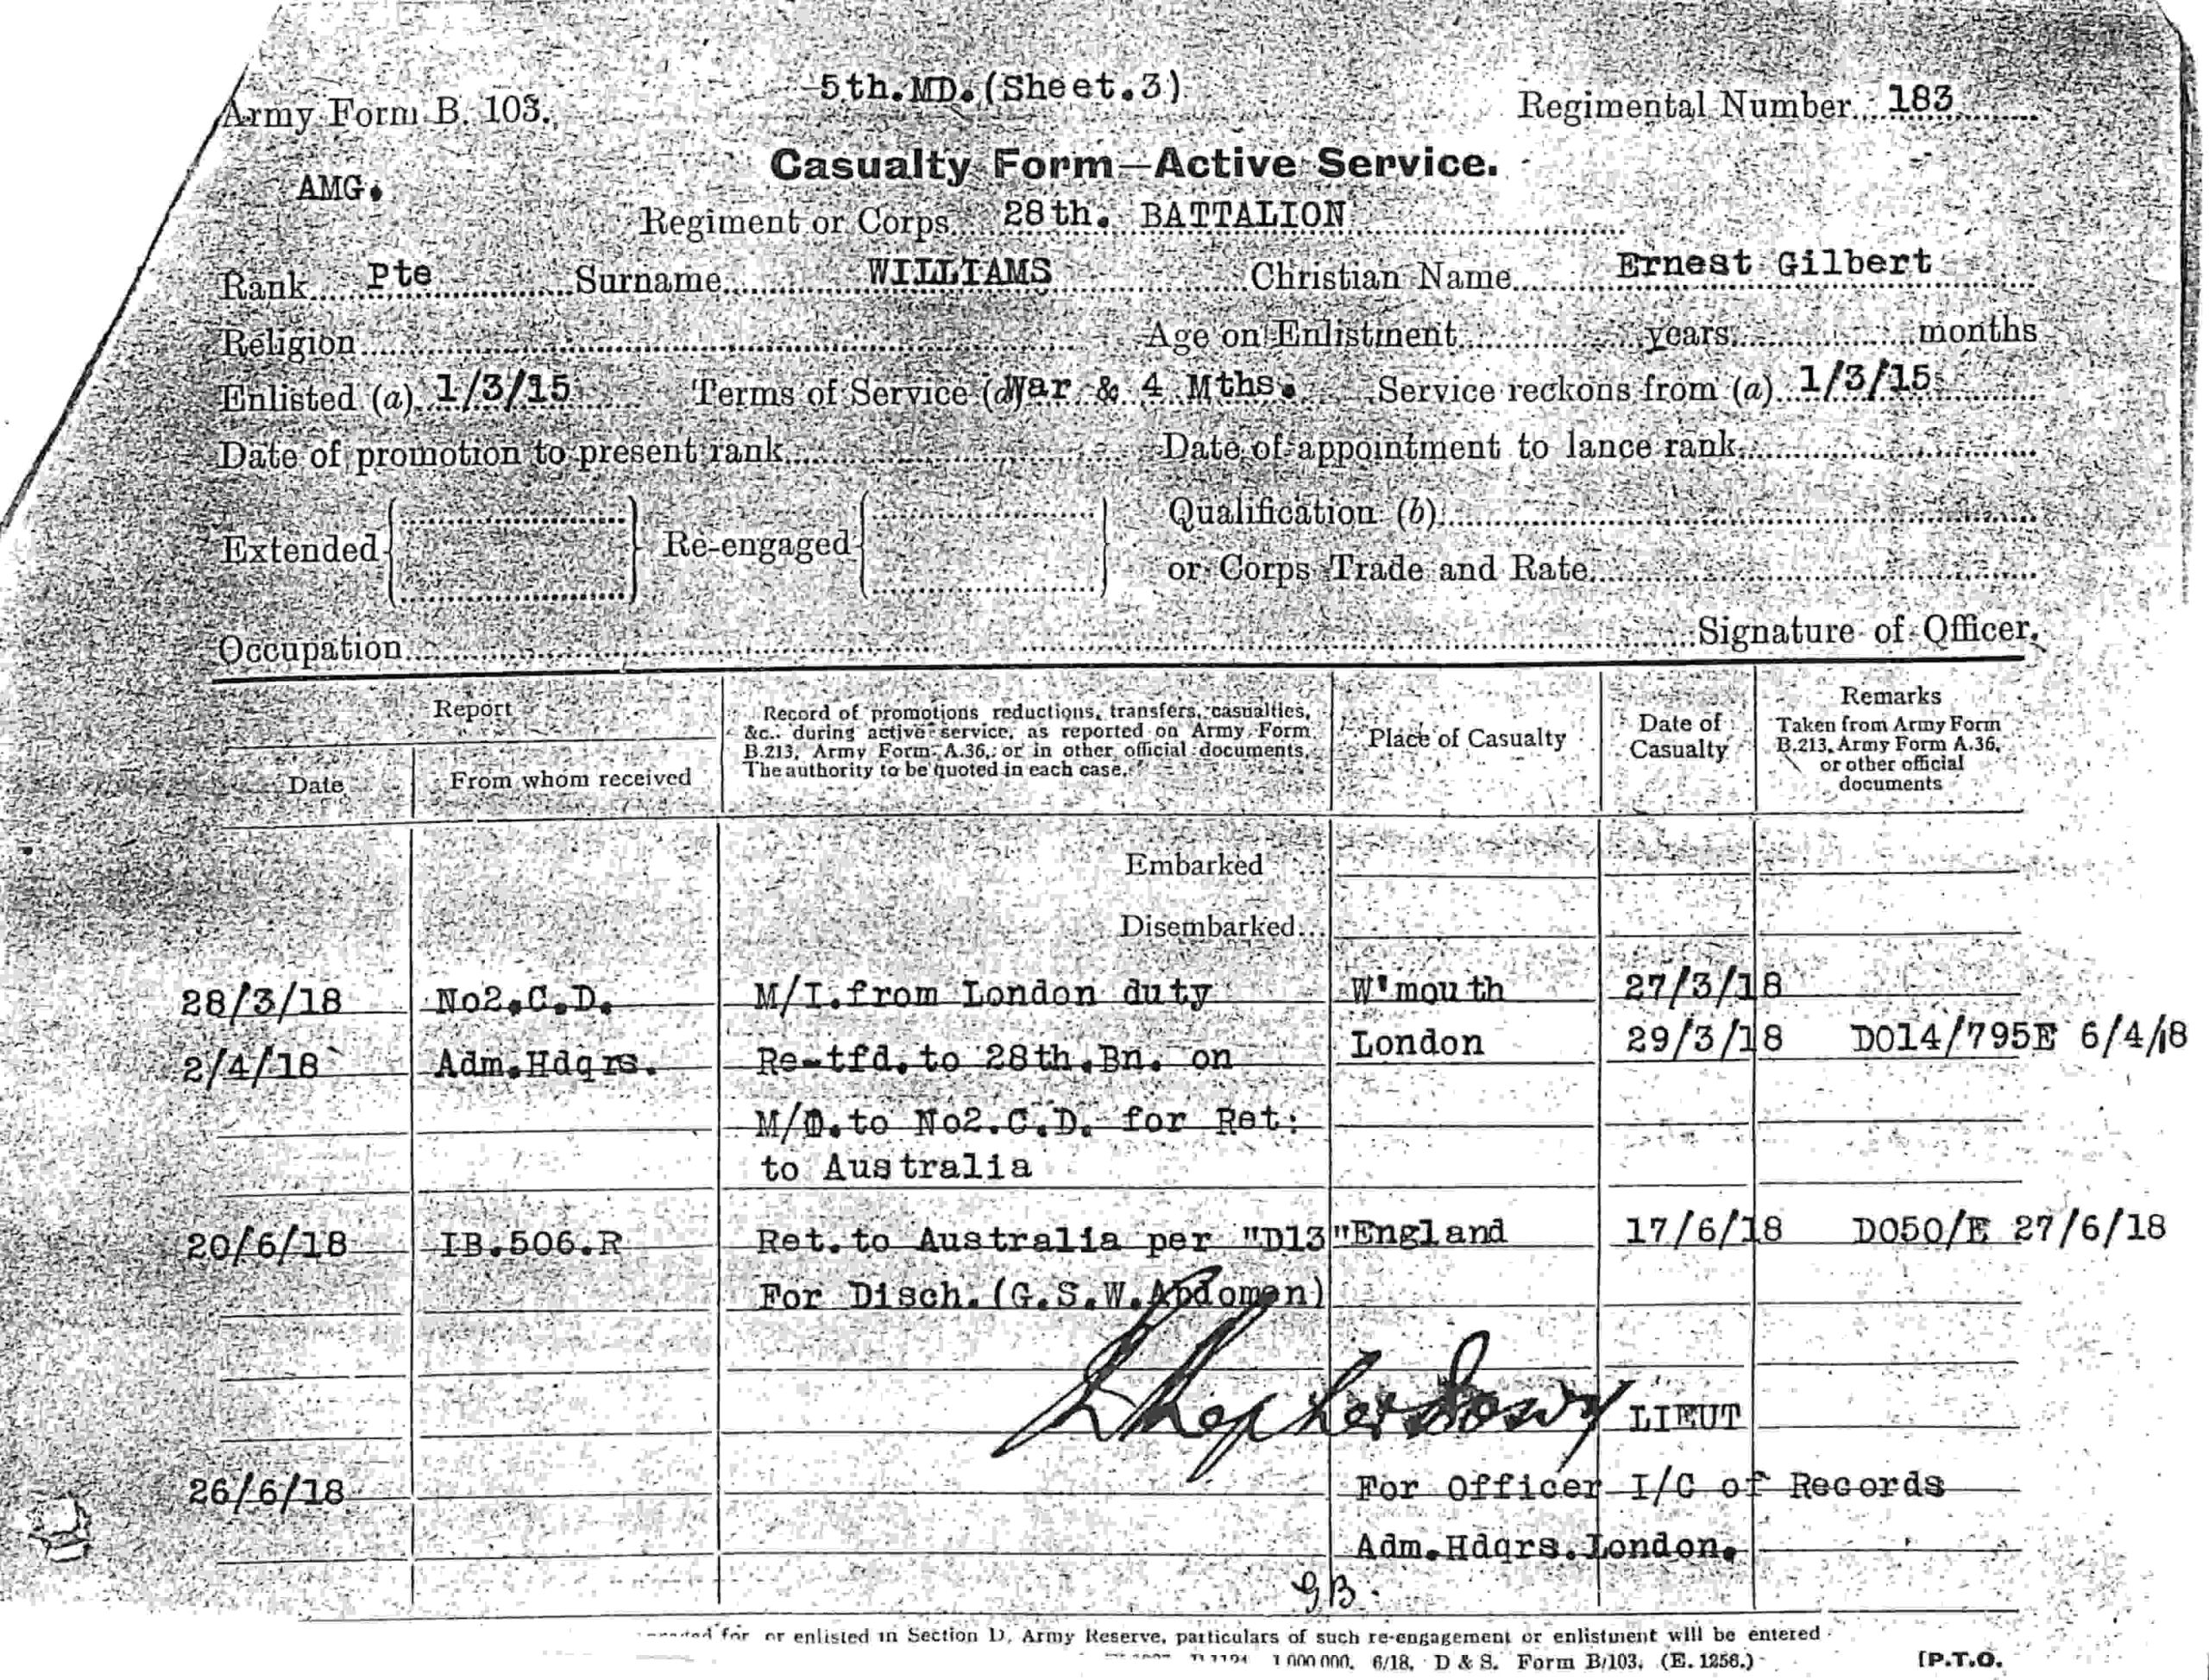 5th.MD.(Sheet.3)
Army Form B. 103. Regimental Number 183
Casualty Form—Active Service.
AMG.
Regiment or Corps 28th. BATTALION
Rank Pte Surname WILLIAMS Christian Name Ernest Gilbert
Religion Age on Enlistment years months
Enlisted (a) 1/3/15 Terms of Service (a) War & 4 Mths. Service reckons from (a) 1/3/15
Date of promotion to present rank Date of appointment to lance rank
Extended Re-engaged Qualification (b)
or Corps Trade and Rate
Occupation Signature of Officer.
Report
Date From whom received
Record of promotions reductions, transfers, casualties,
&c., during active service, as reported on Army Form
B.213, Army Form A.36, or in other official documents.
The authority to be quoted in each case.
Place of Casualty
Date of
Casualty
Remarks
Taken from Army Form
B.213, Army Form A.36,
or other official
documents
Embarked
Disembarked...
28/3/18 No2.C.D. M/I.from London duty W'mouth 27/3/18
2/4/18 Adm.Hdqrs. Re-tfd.to 28th.Bn. on London 29/3/18 DO14/795E 6/4/18
M/O.to No2.C.D. for Ret:
to Australia
20/6/18 IB.506.R Ret.to Australia per "D13" England 17/6/18 DO50/E 27/6/18
For Disch.(G.S.W.Abdomen)
LIEUT
26/6/18 For Officer I/C of Records
Adm.Hdqrs.London.
GB.
for or enlisted in Section D, Army Reserve, particulars of such re-engagement or enlistment will be entered
1 000 000. 6/18. D & S. Form B/103. (E. 1256.)
[P.T.O.